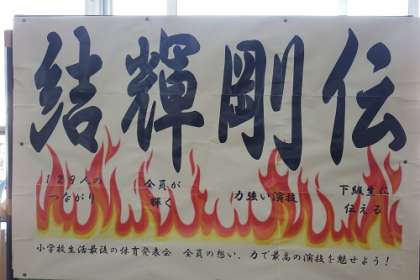 結輝剛伝
129人の
つながり
全員が
輝く
力強い演技
下級生に
伝える
小学校生活最後の体育発表会 全員の想い、力で最高の演技を魅せよう!